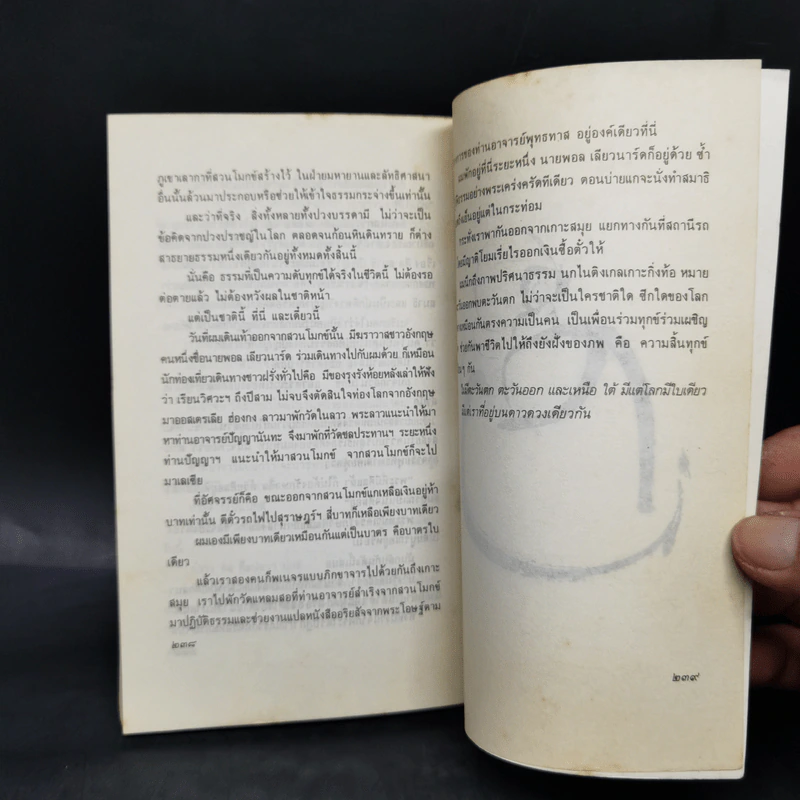 ภูเขาเลากาที่สวนโมกข์สร้างไว้ ในฝ่ายมหายานและลัทธิศาสนา
อื่นนั้นล้วนมาประกอบหรือช่วยให้เข้าใจธรรมกระจ่างขึ้นเท่านั้น
และว่าที่จริง สิ่งทั้งหลายทั้งปวงบรรดามี ไม่ว่าจะเป็น
ข้อคิดจากปวงปราชญ์ในโลก ตลอดจนก้อนหินดินทราย ก็ต่าง
สาธยายธรรมหนึ่งเดียวกันอยู่ทั้งหมดทั้งสิ้นนี้
นั่นคือ ธรรมที่เป็นความดับทุกข์ได้จริงในชีวิตนี้ ไม่ต้องรอ
ต่อตายแล้ว ไม่ต้องหวังผลในชาติหน้า
แต่เป็นชาตินี้ ที่นี่ และเดี๋ยวนี้
วันที่ผมเดินเท้าออกจากสวนโมกข์นั้น มีฆราวาสชาวอังกฤษ
คนหนึ่งชื่อนายพอล เลียวนาร์ด ร่วมเดินทางไปกับผมด้วย ก็เหมือน
นักท่องเที่ยวเดินทางชาวฝรั่งทั่วไปคือ มีของรุงรังห้อยหลังเล่าให้ฟัง
ว่า เรียนวิศวะฯ ถึงปีสาม ไม่จบจึงตัดสินใจท่องโลกจากอังกฤษ
มาออสเตรเลีย ฮ่องกง ลาวมาพักวัดในลาว พระลาวแนะนำให้มา
หาท่านอาจารย์ปัญญานันทะ จึงมาพักที่วัดชลประทานฯ ระยะหนึ่ง
ท่านปัญญาฯ แนะนำให้มาสวนโมกข์ จากสวนโมกข์ก็จะไป
มาเลเซีย
ที่อัศจรรย์ก็คือ ขณะออกจากสวนโมกข์แกเหลือเงินอยู่ห้า
บาทเท่านั้น ตีตั๋วรถไฟไปสุราษฎร์ฯ สี่บาทก็เหลือเพียงบาทเดียว
ผมเองมีเพียงบาทเดียวเหมือนกันแต่เป็นบาตร คือบาตรใบ
เดียว
แล้วเราสองคนก็พเนจรแบบภิกขาจารไปด้วยกันถึงเกาะ
สมุย เราไปพักวัดแหลมสอที่ท่านอาจารย์สำเริงจากสวนโมกข์
มาปฏิบัติธรรมและช่วยงานแปลหนังสืออริยสัจจากพระโอษฐ์ตาม
๒๓๘
การของท่านอาจารย์พุทธทาส อยู่องค์เดียวที่นี่
ผมพักอยู่ที่นี่ระยะหนึ่ง นายพอล เลียวนาร์ดก็อยู่ด้วย ซ้ำ
ธรรมอย่างพระเคร่งครัดทีเดียว ตอนบ่ายแกจะนั่งทำสมาธิ
ถึงเย็นอยู่แต่ในกระท่อม
กระทั่งเราพากันออกจากเกาะสมุย แยกทางกันที่สถานีรถ
มีญาติโยมเรี่ยไรออกเงินซื้อตั๋วให้
ผมนึกถึงภาพปริศนาธรรม นกไนติงเกลเกาะกิ่งท้อ หมาย
ตะวันออกพบตะวันตก ไม่ว่าจะเป็นใครชาติใด ซีกใดของโลก
เหมือนกันตรงความเป็นคน เป็นเพื่อนร่วมทุกข์ร่วมเผชิญ
ช่วยกันพาชีวิตไปให้ถึงยังฝั่งของภพ คือ ความสิ้นทุกข์
กัน
ไม่มีตะวันตก ตะวันออก และเหนือ ใต้ มีแต่โลกมีใบเดียว
มีแต่เราที่อยู่บนดาวดวงเดียวกัน
๒๓๙